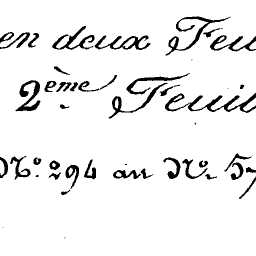 en deux Feu
2ème Feuil
No. 294 au No. 57